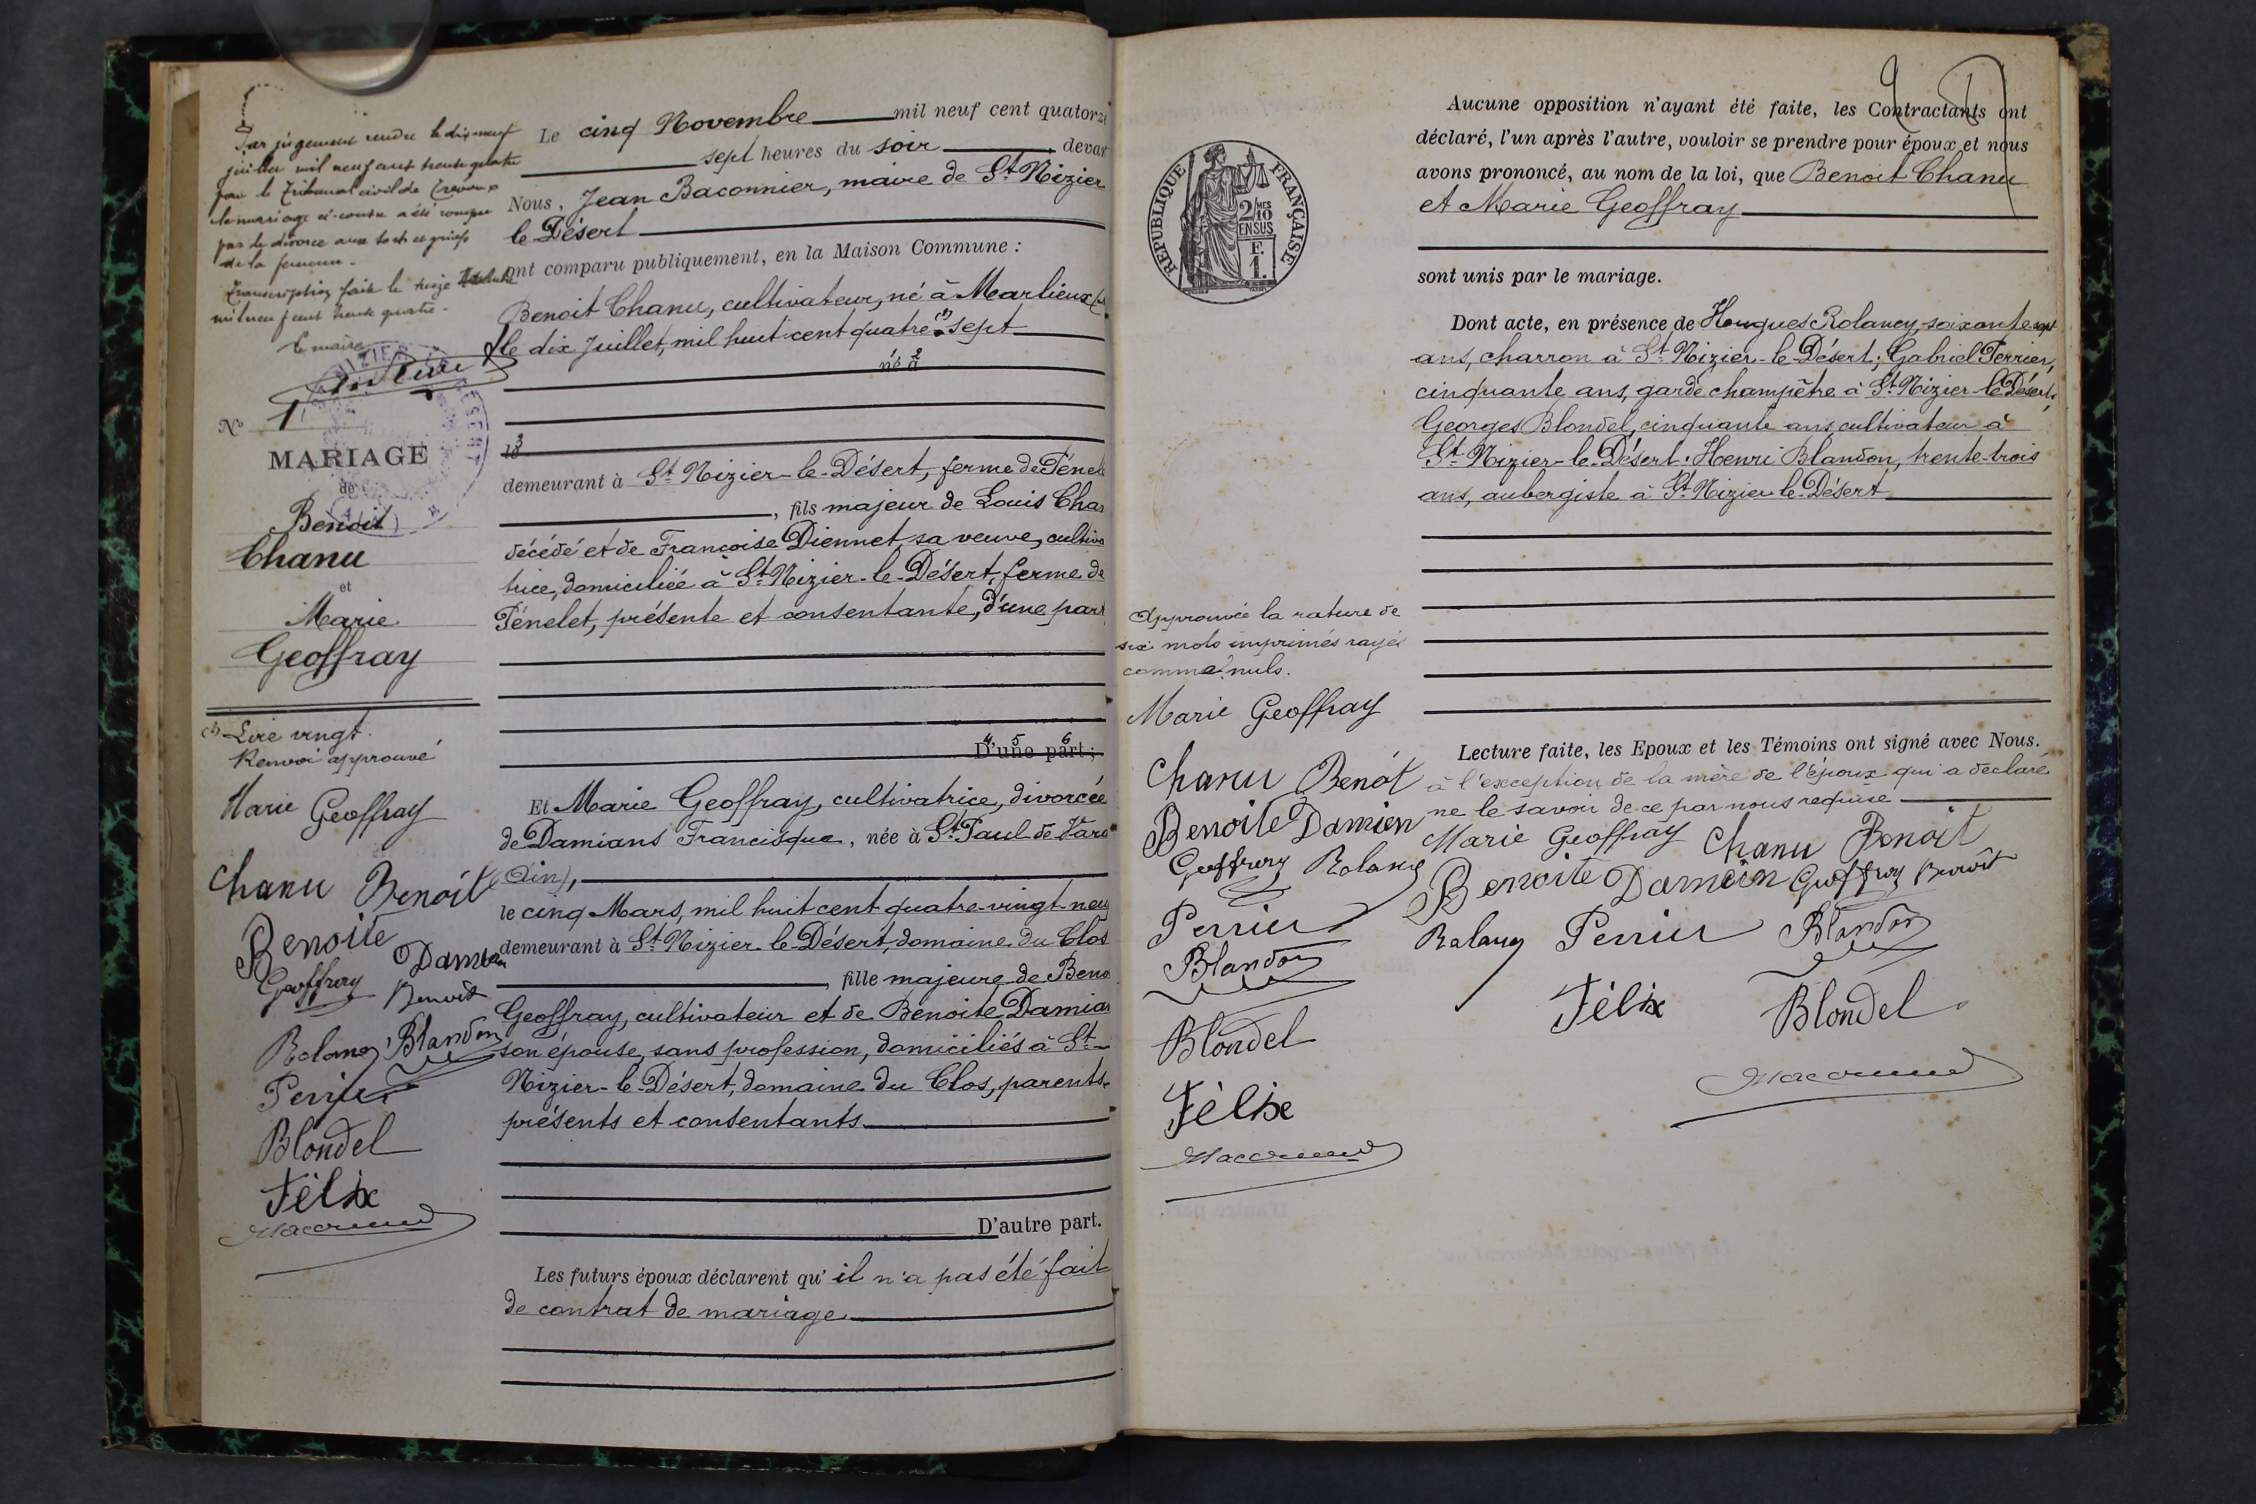 Par jugement rendu le dix neuf
juillet mil neuf cent trente quatre
par le Tribunal civil de Trévoux
le mariage ci-contre a été rompu
par le divorce aux torts et griefs
de la femme.
Transcription faite le treize
mil neuf cent trente quatre.
Le maire
Nº 1
MARIAGE
de
Benoit
Chanu
et
Marie
Geoffray
(1) Lire vingt.
Renvoi approuvé
Marie Geoffray
Chanu Benoît
Benoite Damian
Geoffray Benoît
Rolancy Blandon
Perrier
Blondel
Félix
Le cinq Novembre mil neuf cent quatorze
sept heures du soir devant
Nous, Jean Baconnier, maire de St Nizier
le Désert
ont comparu publiquement, en la Maison Commune :
Benoit Chanu, cultivateur, né à Marlieux
le dix Juillet, mil huit cent quatre (1) sept
1 2
né à
3
le
demeurant à St Nizier-le-Désert, ferme de Pénel
, fils majeur de Louis Chan
décédé et de Françoise Diennet sa veuve, cultiva
trice, domiciliée à St Nizier-le-Désert, ferme de
Pénelet, présente et consentante, d'une part
4 5 6
D'une part ;
Et Marie Geoffray, cultivatrice, divorcée
de Damians Francisque, née à St Paul de Varax
(Ain),
le cinq Mars, mil huit cent quatre-vingt neuf
demeurant à St Nizier le Désert, domaine du Clos
, fille majeure de Beno
Geoffray, cultivateur et de Benoite Damian
son épouse, sans profession, domiciliés à St
Nizier-le-Désert, domaine du Clos, parents
présents et consentants
D'autre part.
Les futurs époux déclarent qu'il n'a pas été fait
de contrat de mariage
RÉPUBLIQUE FRANÇAISE
2/10 MES
EN SUS
F.
1.
Approuvée la rature de
six mots imprimés rayés
comme nuls.
Marie Geoffray
Chanu Benoît
Benoite Damien
Geoffray Rolancy
Perrier
Blandon
Blondel
Félix
Aucune opposition n'ayant été faite, les Contractants ont
déclaré, l'un après l'autre, vouloir se prendre pour époux et nous
avons prononcé, au nom de la loi, que Benoit Chanu
et Marie Geoffray
sont unis par le mariage.
Dont acte, en présence de Hugues Rolancy, soixante sept
ans, charron à St Nizier-le-Désert ; Gabriel Perrier,
cinquante ans, garde champêtre à St Nizier-le-Désert ;
Georges Blondel, cinquante ans, cultivateur à
St Nizier-le-Désert ; Henri Blandon, trente-trois
ans, aubergiste à St Nizier le Désert
Lecture faite, les Epoux et les Témoins ont signé avec Nous.
à l'exception de la mère de l'époux qui a déclaré
ne le savoir de ce par nous requise
Marie Geoffray Chanu Benoit
Benoite Damien Geoffray Benoît
Rolancy Perrier Blandon
Félix Blondel